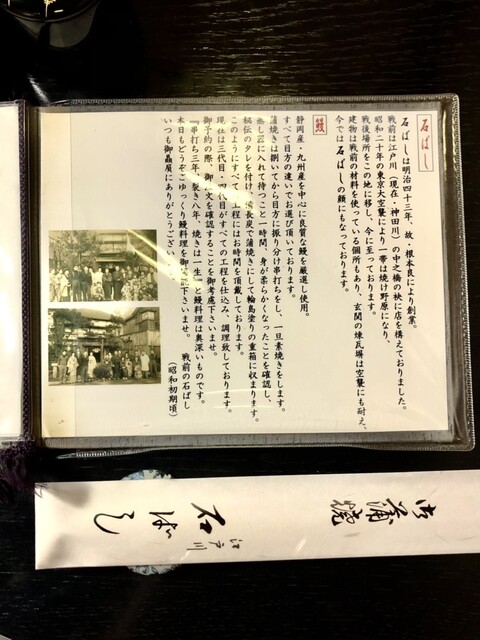 石ばし
石ばしは明治四十三年、故・根本良により創業。
戦前は江戸川(現在・神田川)の中之橋の袂に店を構えておりました。
昭和二十年の東京大空襲により一帯は焼け野原になり、
戦後場所をこの地に移し、今に至っております。
建物は戦前の材料を使っている個所もあり、玄関の煉瓦塀は空襲にも耐え、
今では石ばしの顔にもなっております。
鰻
静岡産・九州産を中心に良質な鰻を厳選し使用。
すべて目方の違いでお選び頂いております。
蒲焼きは捌いてから目方に振り分け串打ちをし、一旦素焼きをします。
蒸し器に入れて待つこと一時間、身が柔らかくなったことを確認し、
秘伝のタレを付け、備長炭で蒲焼きにして輪島塗りの重箱に収まります。
このようにすべて 工程にはお時間を頂戴しております。
現在は三代目・四代目がすべての工程を仕込み、調理致しております。
御予約の際、御 文を確認 ることを御考慮下さいませ。
『串打ち三年、裂き八年、焼きは一生』 と鰻料理は奥深いものです。
本日もどうぞごゆっくり鰻料理を御 下さいませ。
いつも御贔屓にありがとうござい
戦前の石ばし
(昭和初期頃)
御蒲焼
江戸川
石ばし